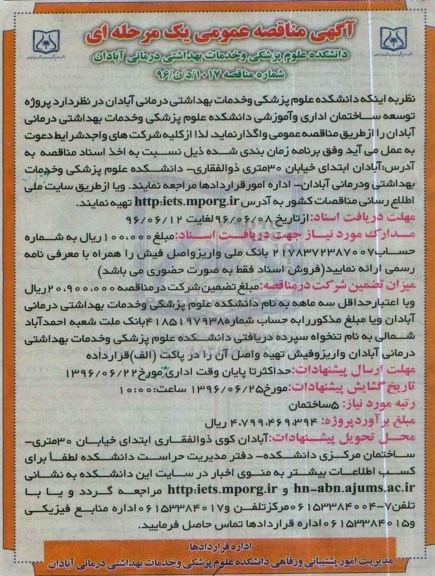 آگهی مناقصه عمومی یک مرحله ای
دانشکده علوم پزشکی وخدمات بهداشتی درمانی آبادان
شماره مناقصه ۱۰۱۷/د/ن/۹۶
نظر به اینکه دانشکده علوم پزشکی وخدمات بهداشتی درمانی آبادان در نظر دارد پروژه
توسعه ساختمان اداری وآموزشی دانشکده علوم پزشکی وخدمات بهداشتی درمانی
آبادان را از طریق مناقصه عمومی واگذار نماید، لذا از کلیه شرکت های واجد شرایط دعوت
به عمل می آید وفق برنامه زمان بندی شده ذیل نسبت به اخذ اسناد مناقصه به
آدرس:آبادان ابتدای خیابان ۳۰متری ذوالفقاری- دانشکده علوم پزشکی وخدمات
بهداشتی ودرمانی آبادان- اداره امور قراردادها مراجعه نمایند. ویا از طریق سایت ملی
اطلاع رسانی مناقصات کشور به آدرس http:iets.mporg.ir تهیه نمایند.
مهلت دریافت اسناد:ازتاریخ ۹۶/۰۶/۰۸لغایت ۹۶/۰۶/۱۲
مدارک مورد نیاز جهت دریافت اسناد:مبلغ۱۰۰،۰۰۰ریال به شماره
حساب۲۱۷۸۳۷۲۳۸۷۰۰۷ بانک ملی واریز واصل فیش را همراه با معرفی نامه
رسمی ارائه نمایید(فروش اسناد فقط به صورت حضوری می باشد)
میزان تضمین شرکت در مناقصه:مبلغ تضمین شرکت در مناقصه ۲۰،۹۰۰،۰۰۰ریال
وبا اعتبار حداقل سه ماهه به نام دانشکده علوم پزشکی وخدمات بهداشتی درمانی
آبادان ویا مبلغ مذکور را به حساب شماره۴۱۸۵۱۹۷۹۳۸بانک ملت شعبه احمدآباد
شمالی به نام تنخواه سپرده دریافتی دانشکده علوم پزشکی وخدمات بهداشتی
درمانی آبادان واریز وفیش تهیه واصل آن را در پاکت (الف)قرارداده
مهلت ارسال پیشنهادات:حداکثر تا پایان وقت اداری مورخ۱۳۹۶/۰۶/۲۲
تاریخ گشایش پیشنهادات:مورخ۱۳۹۶/۰۶/۲۵ ساعت:۱۰:۰۰
رتبه مورد نیاز: ۵ساختمان
مبلغ برآورد پروژه: ۴،۷۹۹،۴۶۹،۳۹۴ ریال
محل تحویل پیشنهادات:آبادان کوی ذوالفقاری ابتدای خیابان ۳۰متری-
ساختمان مرکزی دانشکده- دفتر مدیریت حراست دانشکده لطفا برای
کسب اطلاعات بیشتر به منوی اخبار در سایت این دانشکده به نشانی
hn-abn.ajums.ac.ir و http:iets.mporg.ir مراجعه گردد و یا با
تلفن۷-۰۶۱۵۳۳۸۴۰۰۴مرکزتلفن و۰۶۱۵۳۳۸۴۰۱۷اداره منابع فیزیکی
و۰۶۱۵۳۳۸۴۰۱۵اداره قراردادها تماس حاصل فرمایید.
اداره قراردادها
مدیریت امور پشتیبانی ورفاهی دانشکده علوم پزشکی وخدمات بهداشتی درمانی آبادان